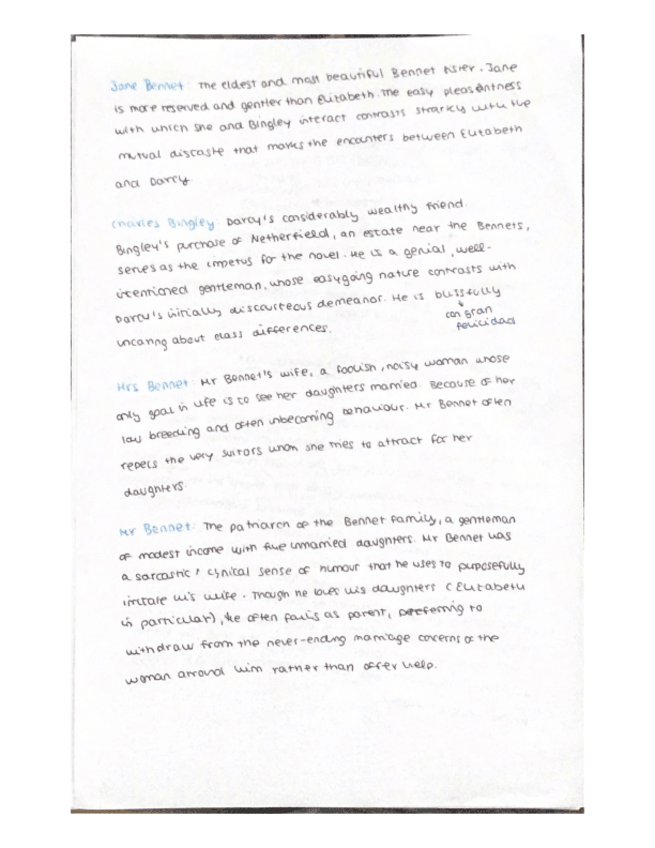 Jane Bennet: The eldest and most beautiful Bennet sister. Jane
is more reserved and gentler than Elizabeth. The easy pleasantness
with which she and Bingley interact contrasts starkly with the
mutual distaste that marks the encounters between Elizabeth
and Darcy.
Charles Bingley: Darcy's considerably wealthy friend.
Bingley's purchase of Netherfield, an estate near the Bennets,
serves as the impetus for the novel. He is a genial, well-
intentioned gentleman, whose easygoing nature contrasts with
Darcy's initially discourteous demeanor. He is blissfully
con gran
felicidad
uncaring about class differences.
Mrs Bennet: Mr Bennet's wife, a foolish, noisy woman whose
only goal in life is to see her daughters married. Because of her
low breeding and often unbecoming behaviour. Mr Bennet often
repels the very suitors whom she tries to attract for her
daughters.
Mr Bennet: The patriarch of the Bennet family, a gentleman
of modest income with five unmarried daughters. Mr Bennet has
a sarcastic, cynical sense of humour that he uses to purposefully
irritate his wife. Though he loves his daughters (Elizabeth
in particular), he often fails as parent, preferring to
withdraw from the never-ending marriage concerns of the
woman arround him rather than offer help.